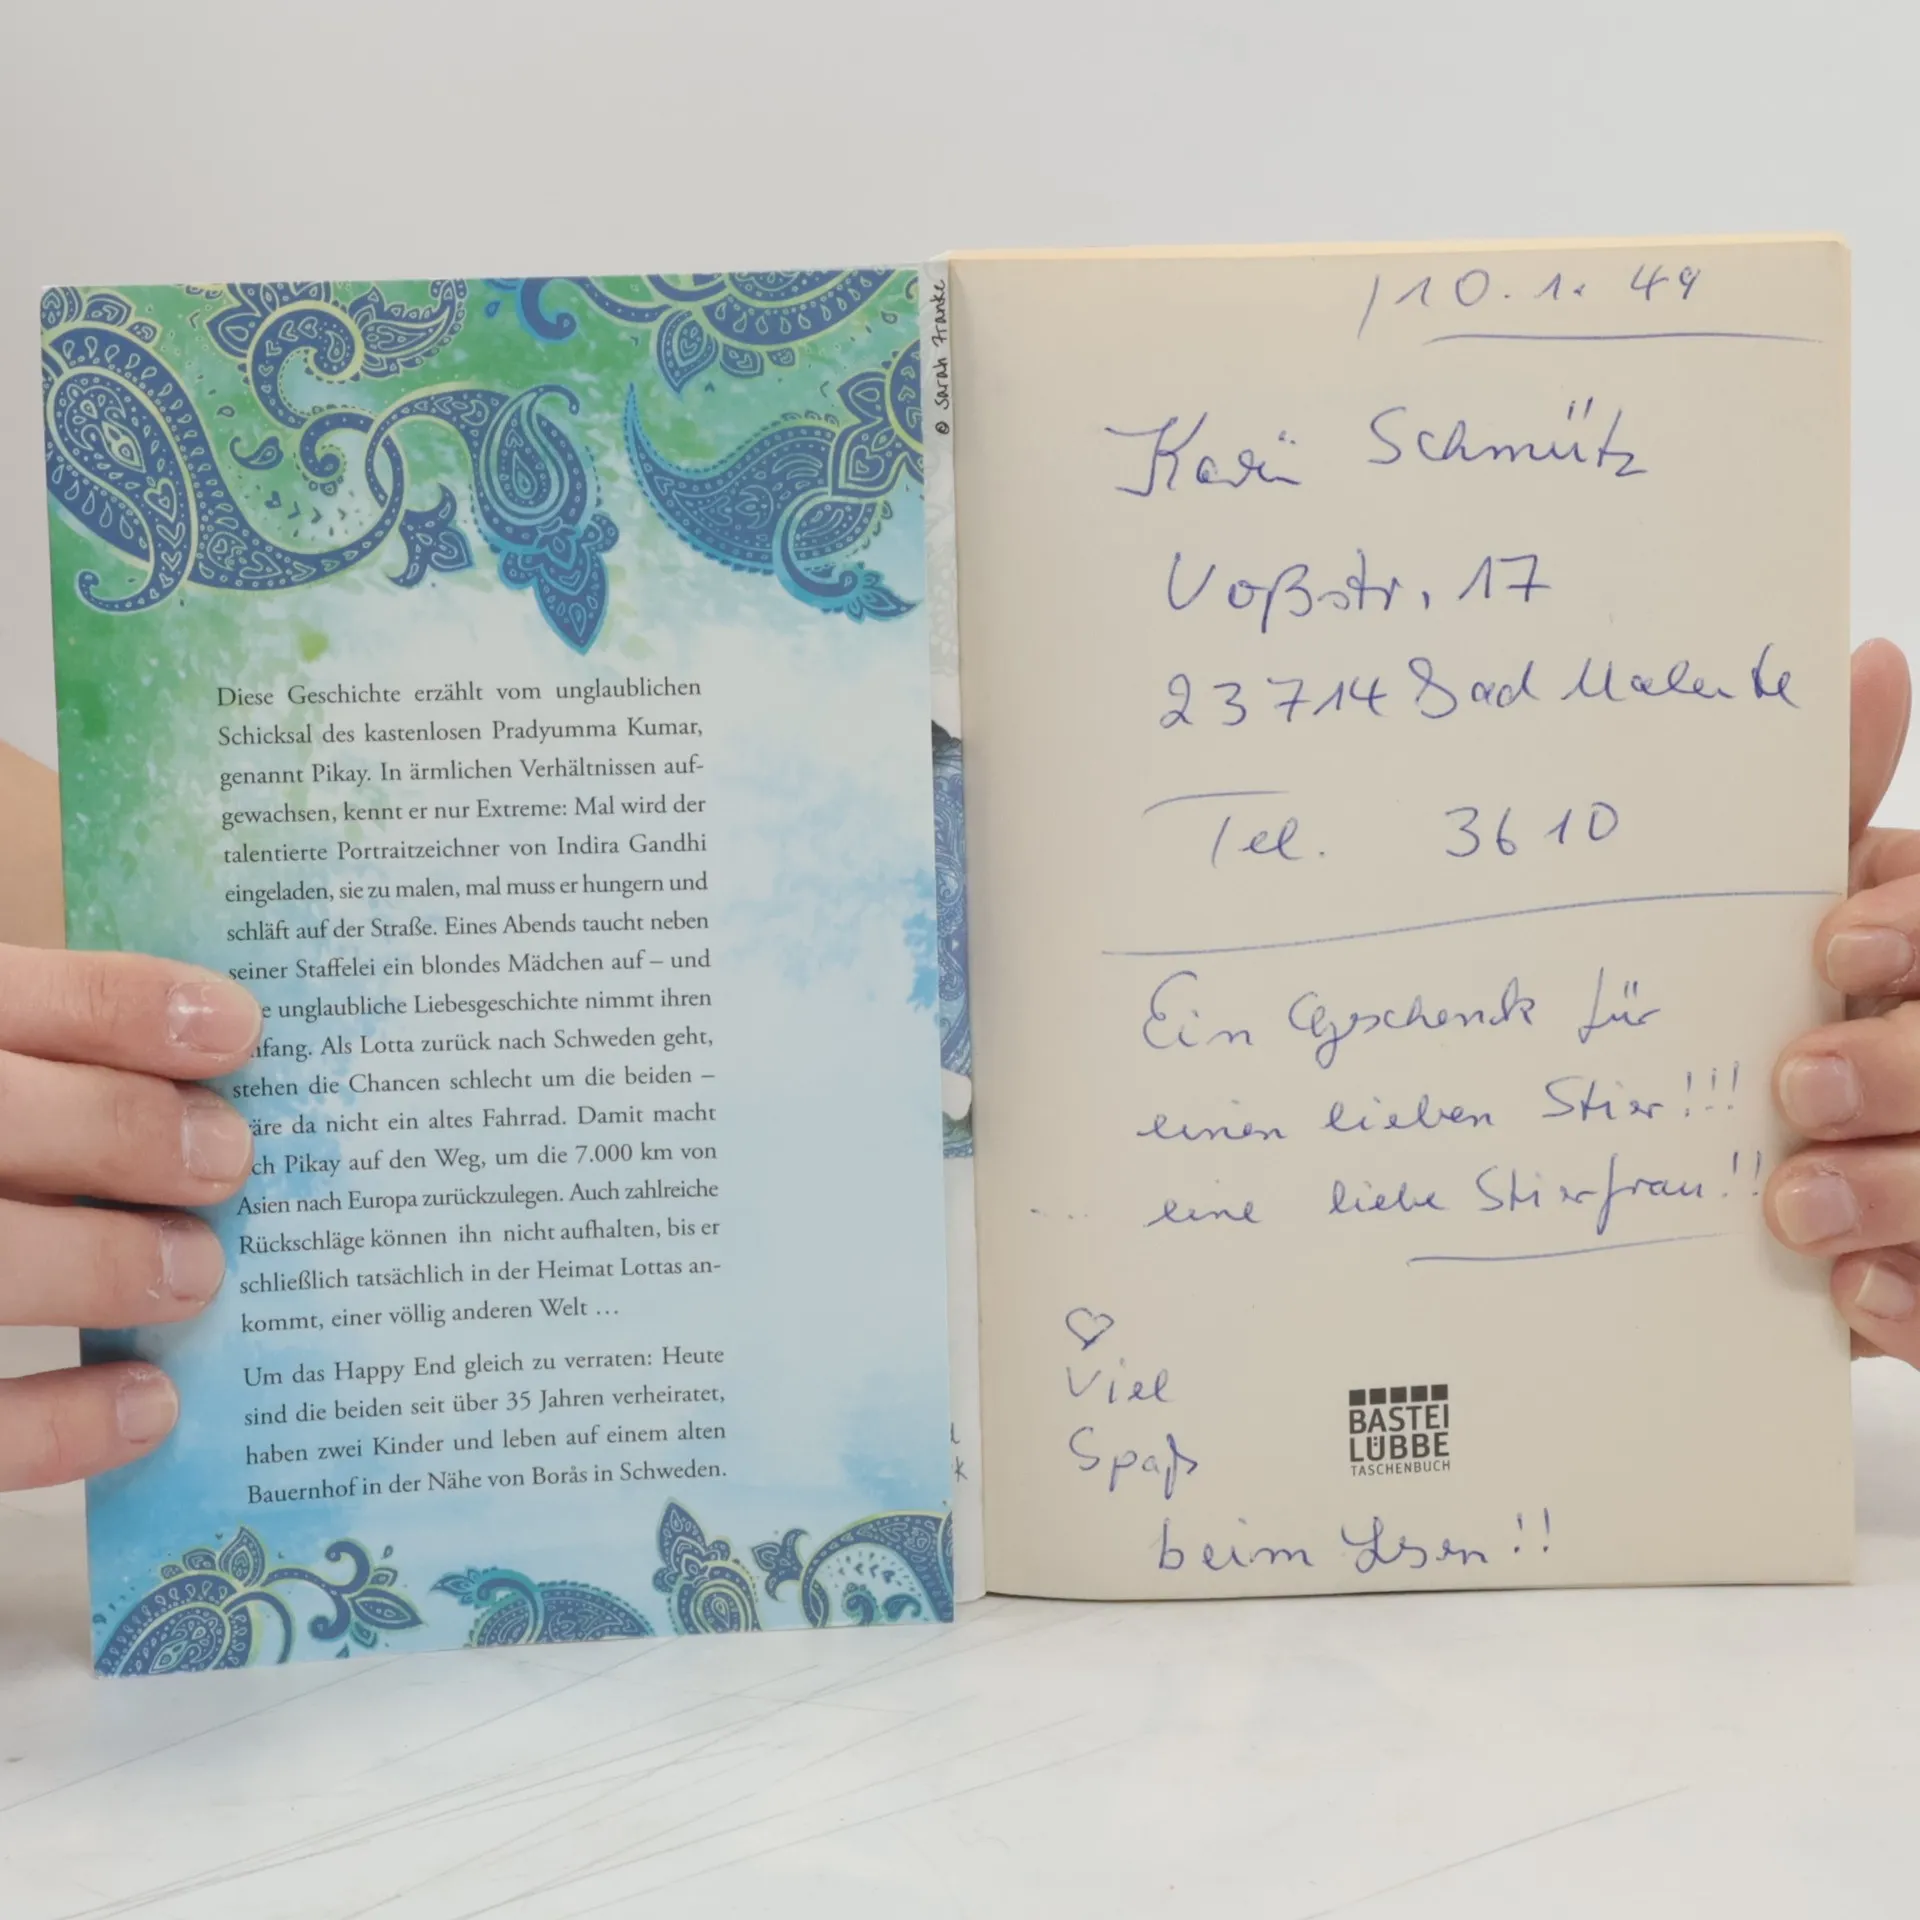 © Sarah Franke
Diese Geschichte erzählt vom unglaublichen
Schicksal des kastenlosen Pradyumma Kumar,
genannt Pikay. In ärmlichen Verhältnissen auf-
gewachsen, kennt er nur Extreme: Mal wird der
talentierte Portraitzeichner von Indira Gandhi
eingeladen, sie zu malen, mal muss er hungern und
schläft auf der Straße. Eines Abends taucht neben
seiner Staffelei ein blondes Mädchen auf – und
e unglaubliche Liebesgeschichte nimmt ihren
nfang. Als Lotta zurück nach Schweden geht,
stehen die Chancen schlecht um die beiden –
äre da nicht ein altes Fahrrad. Damit macht
ch Pikay auf den Weg, um die 7.000 km von
Asien nach Europa zurückzulegen. Auch zahlreiche
Rückschläge können ihn nicht aufhalten, bis er
schließlich tatsächlich in der Heimat Lottas an-
kommt, einer völlig anderen Welt ...
Um das Happy End gleich zu verraten: Heute
sind die beiden seit über 35 Jahren verheiratet,
haben zwei Kinder und leben auf einem alten
Bauernhof in der Nähe von Borås in Schweden.
10.1.49
Schmütz
Voßstr. 17
23714 Bad Malente
Tel. 3610
Ein Geschenk für
einen lieben Stier!!!
... eine liebe Stierfrau!!
♡
Viel
Spaß
beim Lesen!!
BASTEI
LÜBBE
TASCHENBUCH